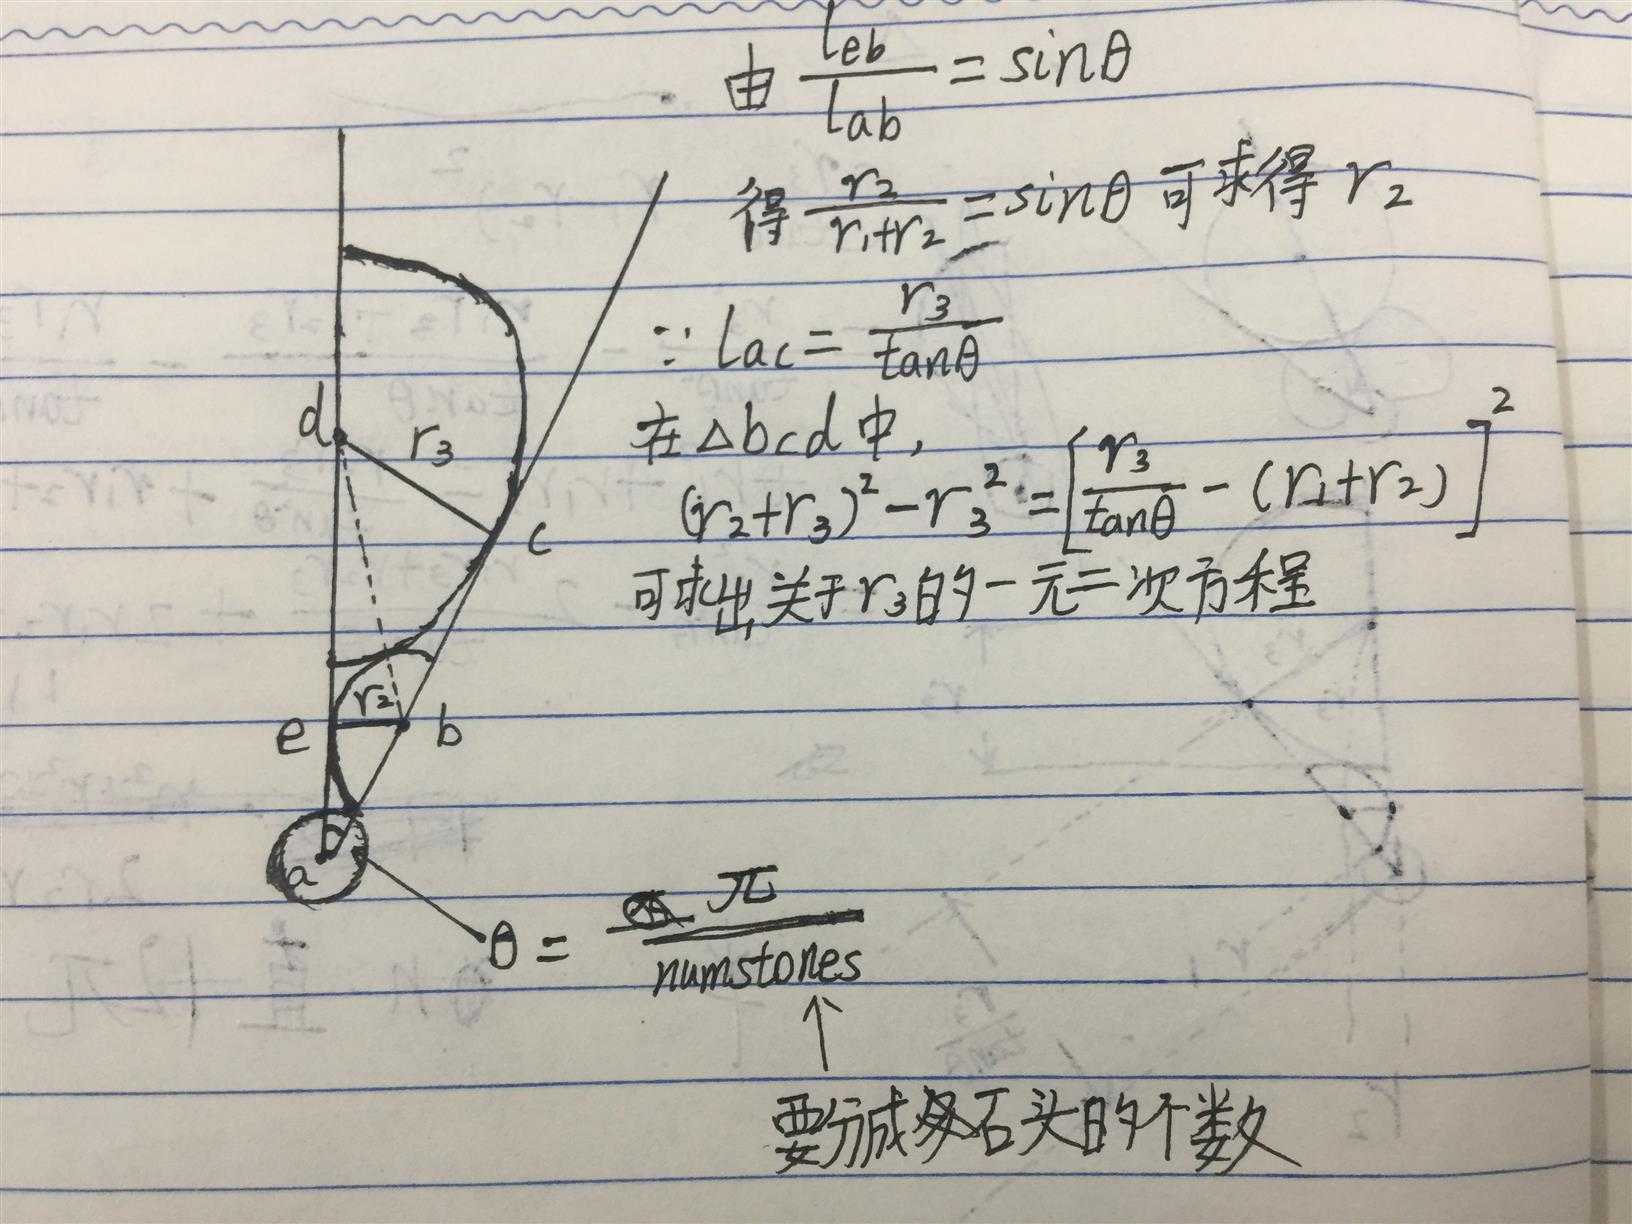 由 leb/lab = sinθ
得 r2/(r1+r2) = sinθ 可求得 r2
∵ lac = r3/tanθ
在△bcd中,
(r2+r3)² - r3² = [r3/tanθ - (r1+r2)]²
可求出关于r3的一元二次方程
d
r3
c
r2
e
b
a
θ = π/numstones
↑
要分成石头的个数